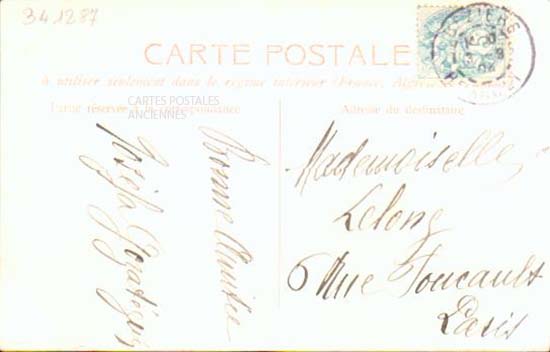 341287
CARTE POSTALE
à utiliser seulement dans le régime intérieur (France, Algérie
Partie réservée à la correspondance
Adresse du destinataire
CARTES POSTALES
ANCIENNES
BEZIERS
Bonne Année
Mademoiselle
Lelong
6 Rue Foucault
Paris